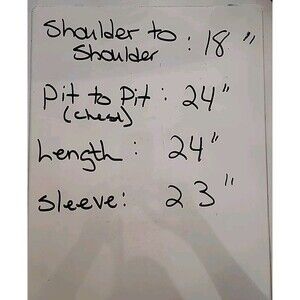 Shoulder to : 18"
Shoulder
Pit to Pit : 24"
(chest)
Length : 24"
Sleeve : 23"